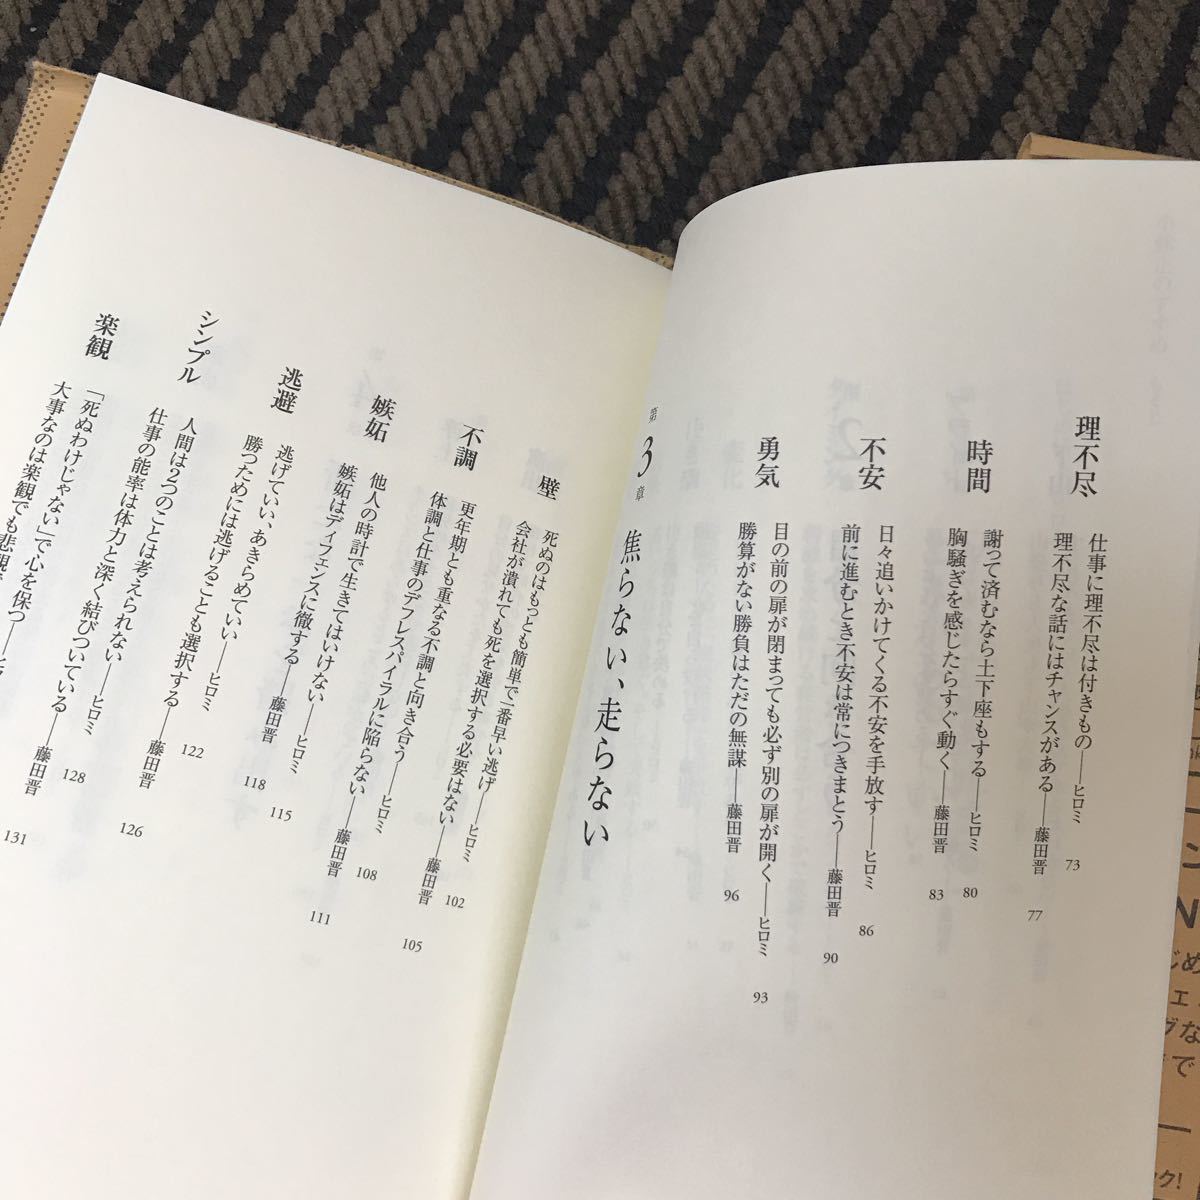 理不尽
仕事に理不尽は付きもの——ヒロミ 73
理不尽な話にはチャンスがある——藤田晋 77
時間
謝って済むなら土下座もする——ヒロミ 80
胸騒ぎを感じたらすぐ動く——藤田晋 83
不安
日々追いかけてくる不安を手放す——ヒロミ 86
前に進むとき不安は常につきまとう——藤田晋 90
勇気
目の前の扉が閉まっても必ず別の扉が開く——ヒロミ 93
勝算がない勝負はただの無謀——藤田晋 96
第3章 焦らない、走らない
壁
死ぬのはもっとも簡単で一番早い逃げ——ヒロミ 102
会社が潰れても死を選択する必要はない——藤田晋 105
不調
更年期とも重なる不調と向き合う——ヒロミ 108
体調と仕事のデフレスパイラルに陥らない——藤田晋 111
嫉妬
他人の時計で生きてはいけない——ヒロミ 115
嫉妬はディフェンスに徹する——藤田晋 118
逃避
逃げていい、あきらめていい——ヒロミ 122
勝つためには逃げることも選択する——藤田晋 126
シンプル
人間は2つのことは考えられない——ヒロミ 128
仕事の能率は体力と深く結びついている——藤田晋 131
楽観
「死ぬわけじゃない」で心を保つ——ヒ
大事なのは楽観でも悲観で